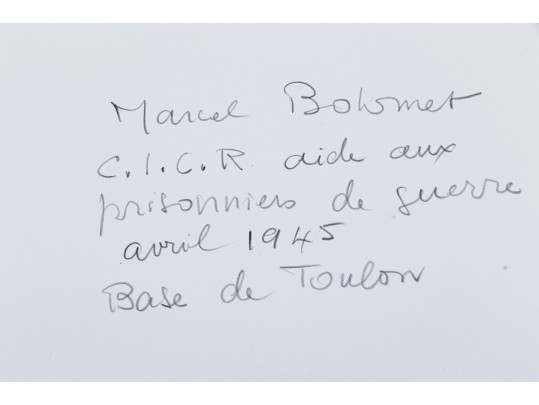 Marcel Bolomet
C.I.C.R. aide aux
prisonniers de guerre
avril 1945
Base de Toulon